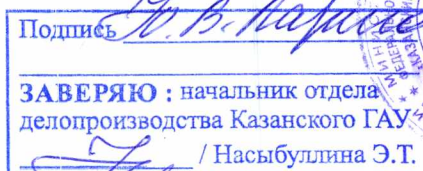 Подпись Ю. В.
ЗАВЕРЯЮ : начальник отдела
делопроизводства Казанского ГАУ
/ Насыбуллина Э.Т.